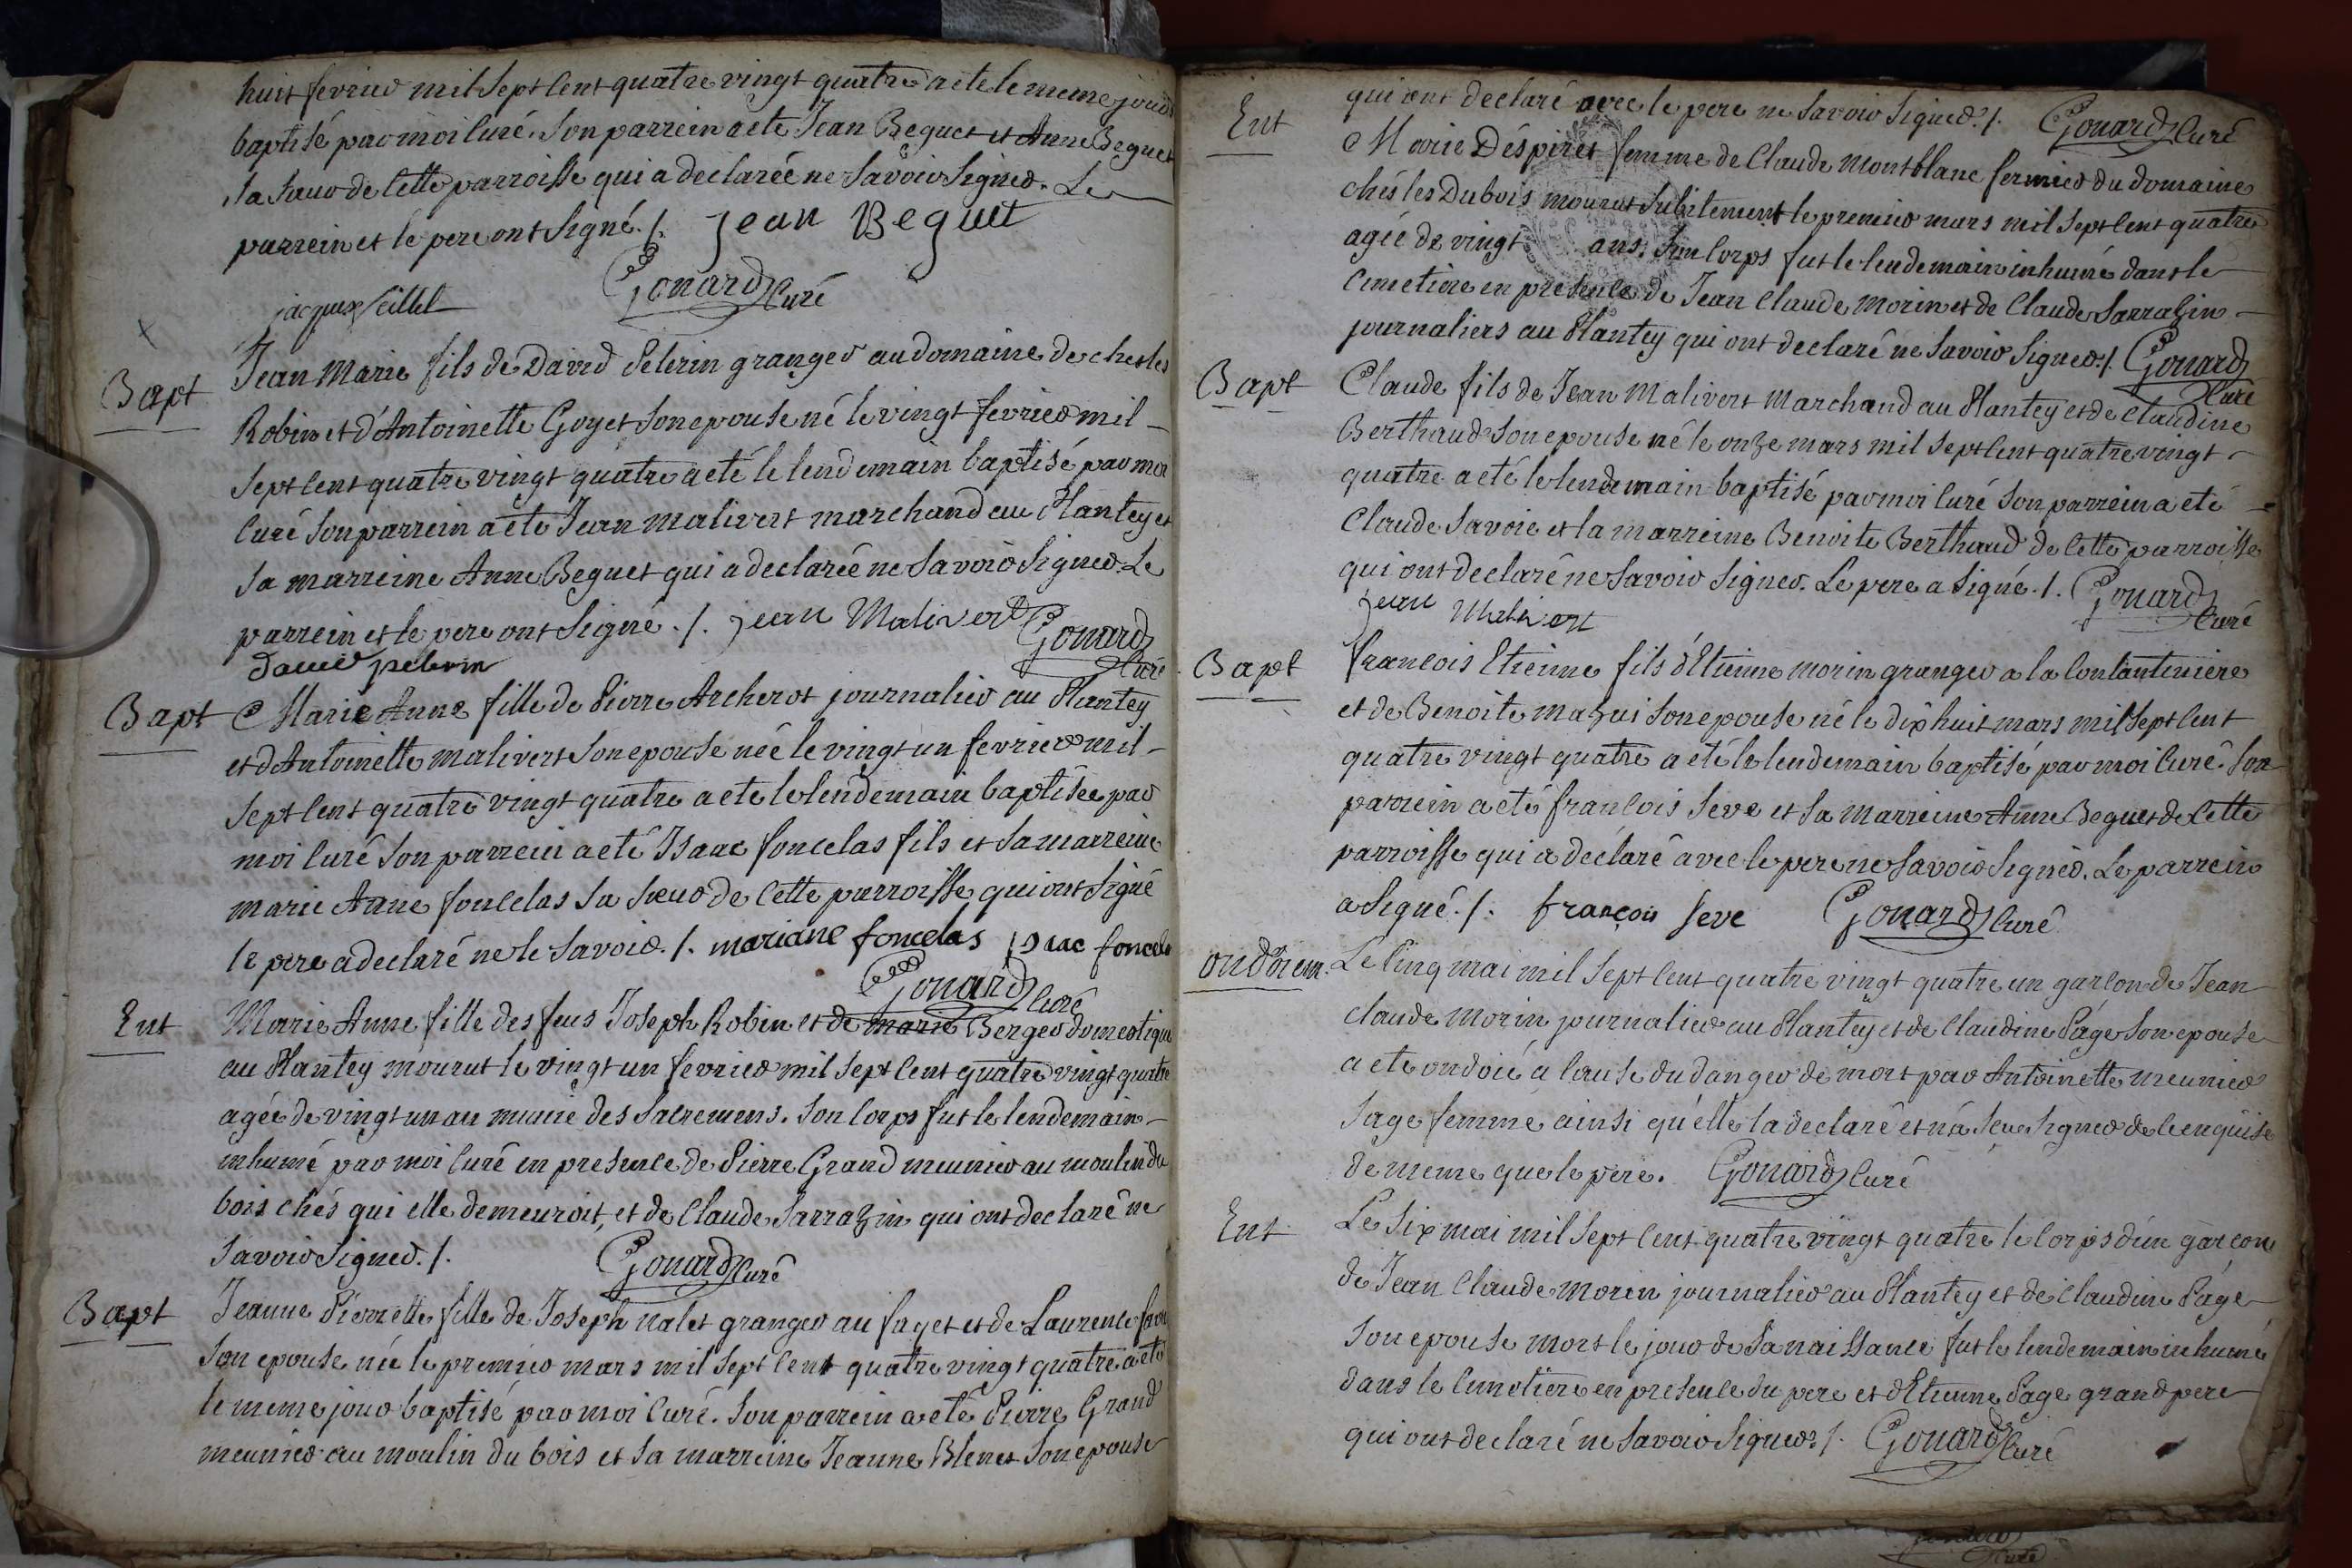 huit fevrier mil sept cent quatre vingt quatre a ete le meme jour
baptisé par moi curé. Son parrein a ete Jean Beguet et Anne Beguet
sa sœur de cette parroisse qui a declareé ne savoir signer. Le
parrein et le pere ont signé ./. jean Beguet
Gonard Curé
jacques
Bapt
Jean Marie fils de David Pelerin granger au domaine de ches les
Robin et d'Antoinette Goyet son epouse né le vingt fevrier mil
sept cent quatre vingt quatre a eté le lendemain baptisé par moi
curé son parrein a ete Jean Malivert marchand au Plantey et
sa marreine Anne Beguet qui a declareé ne savoir signer. Le
parrein et le pere ont signé ./. jean Malivert Gonard
david pelerin curé
Bapt Marie Anne fille de Pierre Archerot journalier au Plantey
et d'Antoinette malivert son epouse née le vingt un fevrier mil
sept cent quatre vingt quatre a ete le lendemain baptisée par
moi curé son parrein a eté Isaac foncelas fils et sa marreine
marie Anne foncelas sa sœur de cette parroisse qui ont signé
le pere a declaré ne le savoir ./. mariane foncelas isaac foncela
Gonard curé
Ent Marie Anne fille des feus Joseph Robin et de marie Berger domestique
au Plantey mourut le vingt un fevrier mil sept cent quatre vingt quatre
ageé de vingt un an munie des sacremens. Son corps fut le lendemain
inhumé par moi curé en presence de Pierre Grand meunier au moulin du
bois chés qui elle demeuroit, et de Claude Sarrazin qui ont declaré ne
savoir signer ./. Gonard Curé
Bapt Jeanne Pierrette fille de Joseph nalet granger au faget et de Laurence
son epouse née le premier mars mil sept cent quatre vingt quatre a eté
le meme jour baptisé par moi curé. Son parrein a eté Pierre Grand
meunier au moulin du bois et sa marreine Jeanne Blenet son epouse
qui ont declaré avec le pere ne savoir signer ./. Gonard Curé
Ent Marie Déspiret femme de Claude Montblanc fermier du domaine
chés les Dubois mourut subitement le premier mars mil sept cent quatre
ageé de vingt ans. Son corps fut le lendemain inhumé dans le
cimetiere en presence de Jean Claude Morin et de Claude Sarrazin
journaliers au Plantey qui ont declaré ne savoir signer ./. Gonard
Curé
Bapt Claude fils de Jean Malivert Marchand au Plantey et de Claudine
Berthaud son epouse né le onze mars mil sept cent quatre vingt
quatre a eté le lendemain baptisé par moi curé son parrein a eté
Claude Savoie et la marreine Benoite Berthaud de cette parroisse
qui ont declaré ne savoir signer. Le pere a signé ./. Gonard
jean Malivert Curé
Bapt francois Etienne fils d'Etienne Morin granger a la
et de Benoite mazui son epouse né le dix huit mars mil sept cent
quatre vingt quatre a eté le lendemain baptisé par moi curé. Son
parrein a eté francois Seve et sa Marreine Anne Beguet de cette
parroisse qui a declaré avec le pere ne savoir signer. Le parrein
a signé ./. françois seve Gonard Curé
ondoiem. Le cinq mai mil sept cent quatre vingt quatre un garcon de Jean
claude Morin journalier au Plantey et de Claudine Page son epouse
a ete ondoié a cause du danger de mort par Antoinette meunier
sage femme ainsi qu'elle la declaré et n'a seu signer de ce enquise
de meme que le pere. Gonard Curé
Ent Le six mai mil sept cent quatre vingt quatre le corps d'un garcon
de Jean Claude Morin journalier au Plantey et de Claudine Page
son epouse mort le jour de sa naissance fut le lendemain inhumé
dans le cimetiere en presence du pere et d'Etienne Page grand pere
qui ont declaré ne savoir signer ./. Gonard Curé